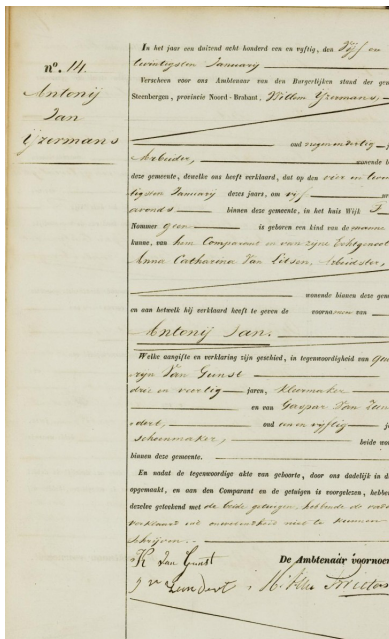 n°. 14.
Antonij
Jan
IJzermans
In het jaar een duizend acht honderd een en vyftig, den Vijf en
twintigsten Januarij
Verscheen voor ons Ambtenaar van den Burgerlijken stand der gem
Steenbergen, provincie Noord-Brabant, Willem IJzermans,
oud negen en dertig
Arbeider, wonende b
deze gemeente, dewelke ons heeft verklaard, dat op den vier en twin
tigsten Januarij dezes jaars, om vijf
avonds binnen deze gemeente, in het huis Wijk F
Nommer geen is geboren een kind van de manne
kunne, van hem Comparant en van zijne Echtgenoot
Anna Catharina Van Litsen, Arbeidster,
wonende binnen deze gem
en aan hetwelk hij verklaard heeft te geven de voornamen van
Antonij Jan.
Welke aangifte en verklaring zijn geschied, in tegenwoordigheid van
Van Gunst
drie en veertig jaren, kleermaker
en van Gaspar Van
dert, oud een en vyftig
schoenmaker, beide wo
binnen deze gemeente.
En nadat de tegenwoordige akte van geboorte, door ons dadelijk in d
opgemaakt, en aan den Comparant en de getuigen is voorgelezen, hebbe
dezelve geteekend met de beide getuigen, hebbende de vader
verklaard uit onwetendheid niet te kunnen
schrijven.
K Van Gunst De Ambtenaar voornoem